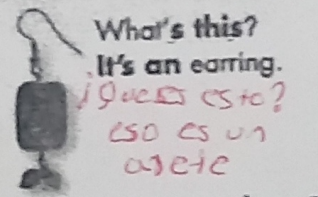 What's this?
It's an earring.
¡Que es esto?
eso es un
arete